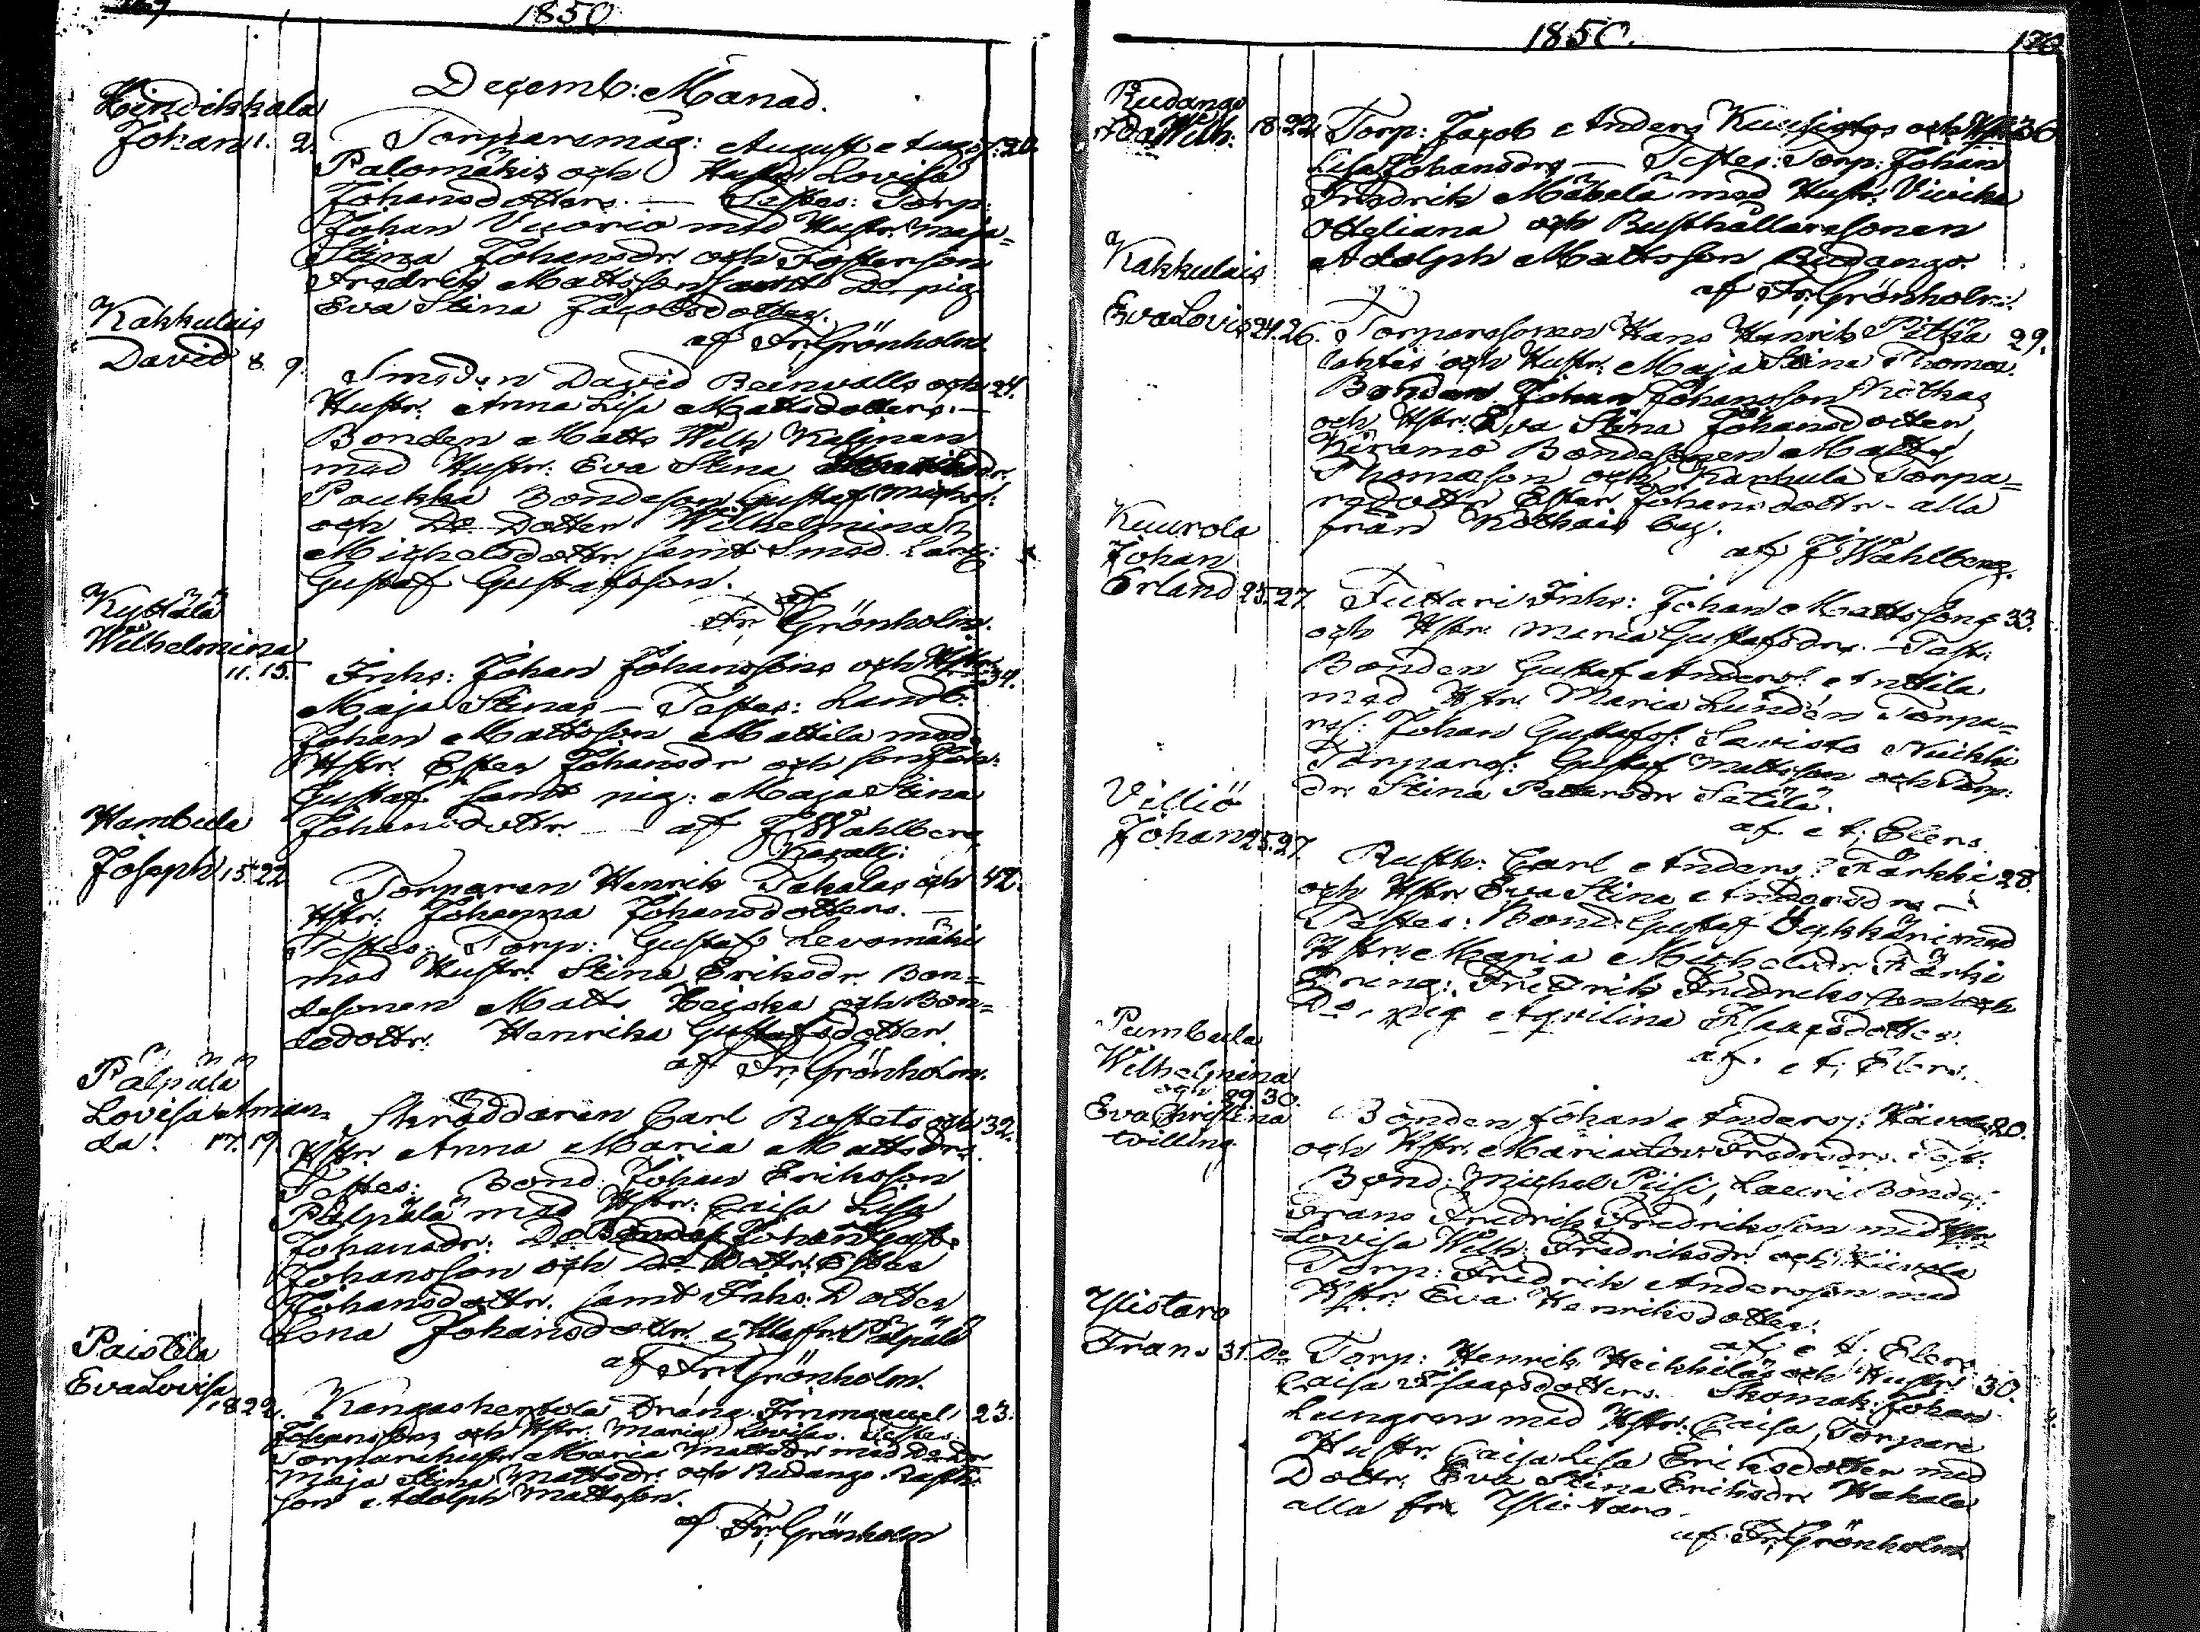 1850
Decemb: Månad.
Hindikkala
Johan 1. 2. Torparemåg: August Aug:s: 20.
Palomäkis och Hustr. Lovisa
Johansdotters. — Testes: Torp:
Johan Vuorio med Hustr. Maja
Stina Johansdr och Fosterson
Fredrik Mattsson samt D:o pig.
Eva Stina Jacobsdotter.
af Fr: Grönholm.
Kakkulais
David 8. 9. Smeden David Reinvalls och 24.
Hustr. Anna Lisa Mattsdotters. —
Bonden Matts Wilh. Kalinen
med Hustr. Eva Stina
Poukka Bondeson Gustaf Michels.
och D:o Dotter Wilhelmina
Michelsdotter samt Smed. Lärg:
Gustaf Gustafsson.
af
Fr: Grönholm.
Kyttälä
Wilhelmina
11. 15. Inhs: Johan Johanssons och Hstr. 34.
Maja Stinas — Testes: Landb.
Johan Mattsson Mattila med
Hstr. Ester Johansdr och son Joh:
Gustaf samt pig: Maja Stina
Johansdotter — af J Wahlberg
Kapall:
Hambula
Joseph 15. 22. Torparen Henrik Takalas och 42.
Hstr. Johanna Johansdotters. —
Testes: Torp: Gustaf Levomäki
med Hustr. Stina Eriksdr. Bon-
desonen Matts Heiska och Bon-
dedottr. Henrika Gustafsdotter.
af Fr: Grönholm.
Pälpälä
Lovisa Aman-
da. 17. 19. Skräddaren Carl Rostets och 32.
Hstr Anna Maria Mattsdrs.
Testes: Bond. Johan Eriksson
Pälpälä med Hstr: Caisa Lisa
Johansdr: D:o Bondes. Johan Gust.
Johansson och D:o Dottr. Ester
Johansdottr. samt Inhs: Dotter
Lena Johansdottr. Alla fr. Pälpälä
af Fr: Grönholm.
Paistila
Eva Lovisa
18 22. Kangaskentola Dräng. Immanuel 23.
Johanssons och Hstr. Maria Lovisas. Testes.
Torparehustr. Maria Mattsdr med D:o Dr
Maja Stina Mattsdr. och Rudango Rusth.
son Adolph Mattsson.
af Fr: Grönholm
1850.
Rudango
Ada Wilh. 18. 22. Torp: Jacob Anders och Hstr 36
Lisa Johansdrs — Testes: Torp: Johan
Fredrik Mäkelä med Hustr. Vivika
Otteliana och Rusthållaresonen
Adolph Mattsson Rudango.
af Fr: Grönholm.
Kakkulais
Eva Lovis. 24. 26. Torparesonen Hans Henrik Pitkä 29.
lahtis och Hustr. Maja Stina Thomas.
Bonden Johan Johansson
och Hstr. Eva Stina Johansdotter
Kiramo Bondesonen Matts
Thomasson och Karhula Torpa-
redottr Ester Johansdottr — alla
från by.
af J Wahlberg.
Kuurola
Johan
Erland 25. 27. Tuttari Inhs: Johan Mattssons 33.
och Hstr. Maria Gustafsdrs. — Test:
Bonden Gustaf Anders: Anttila
med Hstr. Maria Lundén Torpa-
res: Johan Gustafs: Savisto
Torpares: Gustaf Mattsson och Torp:
dr. Stina Pettersdr Satila.
af A: Elers.
Villiö
Johan 25. 27. Rusth: Carl Anders: Järkki 28.
och Hstr. Eva Stina Andersdrs —
Testes: Bond: Gustaf med
Hstr: Maria Michelsdr. Järki
Dräng: Fredrik Fredriksson och
D:o pig Aqvilina Isaacsdotter.
af. A: Elers.
Pumbula
Wilhelmina
och 29 30.
Eva Christina
tvilling Bonden Johan Anders: 20.
och Hstr. Maria Lov Fredrsdrs. Test:
Bond: Michel Piisi, Lauri Bondes:
Frans Fredrik Fredriksson med Hstr.
Lovisa Wilh. Fredriksdr. och
Torp: Fredrik Andersson med
Hstr: Eva Henriksdotter.
af A. Elers
Ylistaro
Frans 31. D:o Torp: Henrik Heikkiläs och Hustr. 30.
Caisa Isaacsdotters. Skomak: Johan
Lungren med Hstr: Caisa, Torpare
Hustr. Caisa Lisa Eriksdotter med
Dottr. Eva Stina Eriksdr Hakala
alla fr. Ylistaro.
af Fr: Grönholm